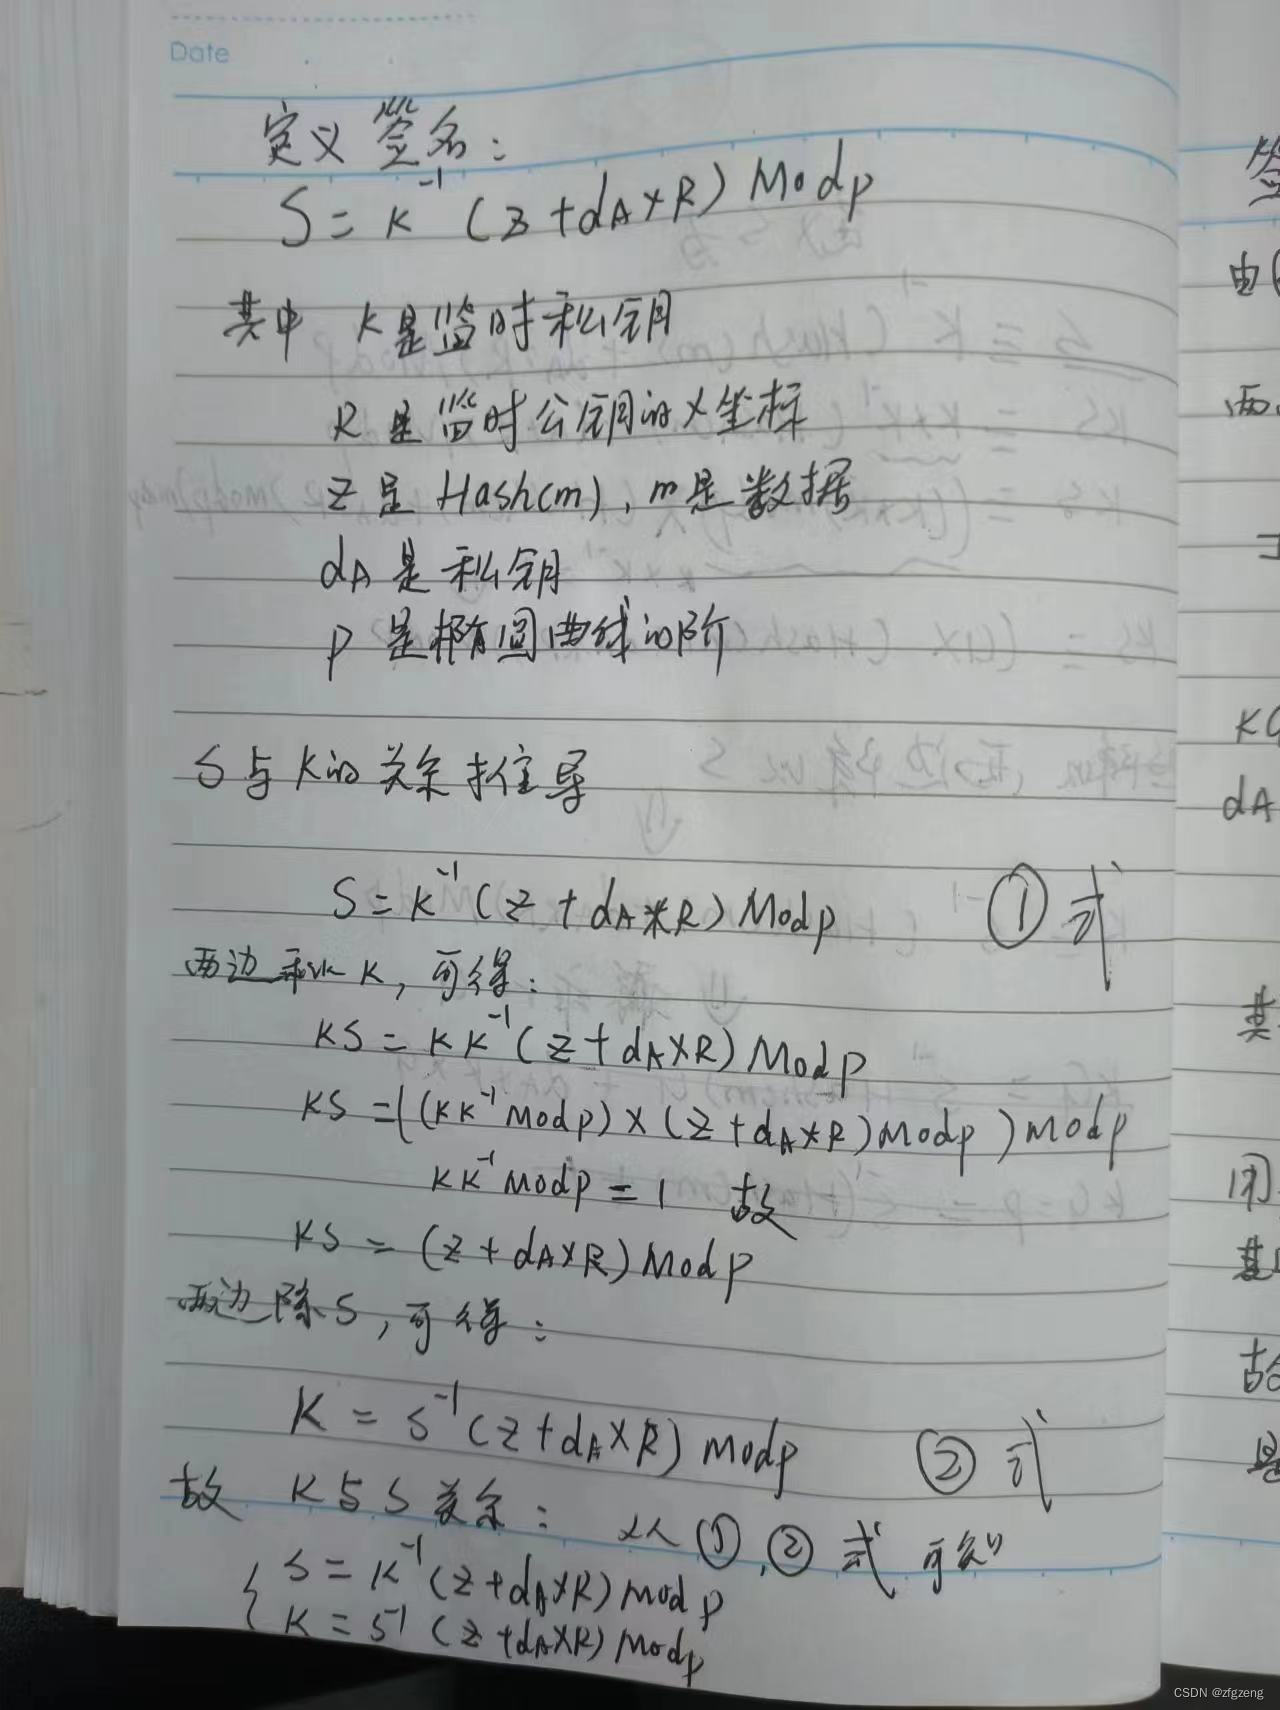 Date
定义签名:
S = K⁻¹ (Z + dA × R) Mod p
其中 K是监时私钥
R 是 监时公钥的X坐标
Z 是 Hash(m), m是数据
dA 是 私钥
P 是椭圆曲线的阶
S 与 K的关系推导
S = K⁻¹ (Z + dA * R) Mod p ① 式
两边乘以 K, 可得:
KS = KK⁻¹ (Z + dA × R) Mod p
KS = ((KK⁻¹ Mod p) × (Z + dA × R) Mod p) mod p
KK⁻¹ Mod p = 1 故
KS = (Z + dA × R) Mod p
两边除S, 可得:
K = S⁻¹ (Z + dA × R) Mod p ② 式
故 K与S关系: 从 ①, ② 式 可知
{ S = K⁻¹ (Z + dA × R) Mod p
K = S⁻¹ (Z + dA × R) Mod p
由
两
KG
dA
其
故
CSDN @zfgzeng